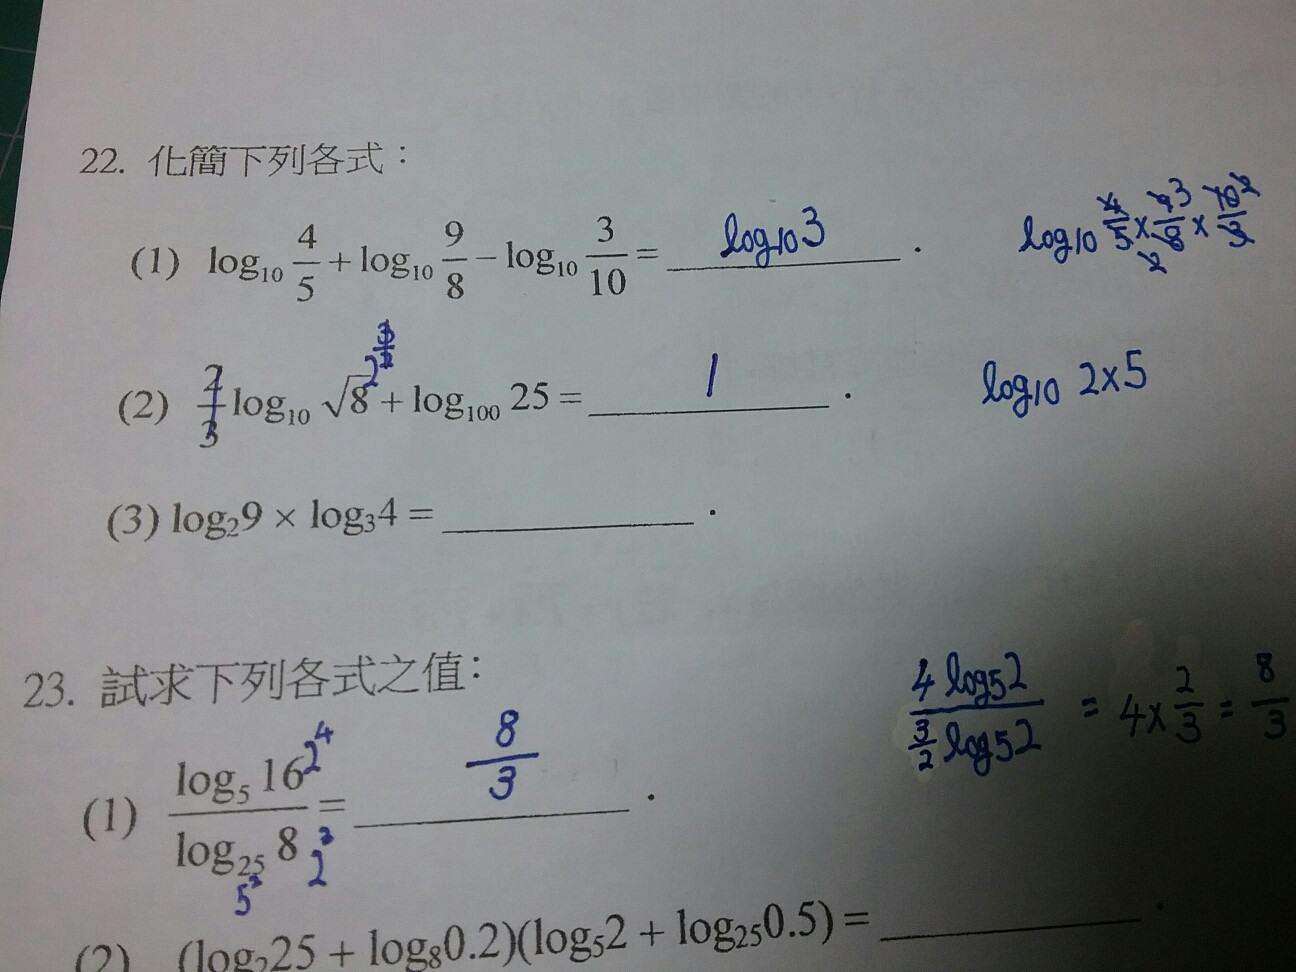 22. 化簡下列各式：
(1) log₁₀ 4/5 + log₁₀ 9/8 − log₁₀ 3/10 = log₁₀3 .
log₁₀ 4/5 × 9/8 × 10/3
3 2
2
(2) 2/3 log₁₀ √8 + log₁₀₀ 25 = 1 .
2^(3/2)
log₁₀ 2×5
(3) log₂9 × log₃4 = ______ .
23. 試求下列各式之值：
4 log₅2 / (3/2 log₅2) = 4 × 2/3 = 8/3
(1) log₅ 16 / log₂₅ 8 = 8/3 .
2⁴
2³
5²
(2) (log₂25 + log₈0.2)(log₅2 + log₂₅0.5) = ______ .